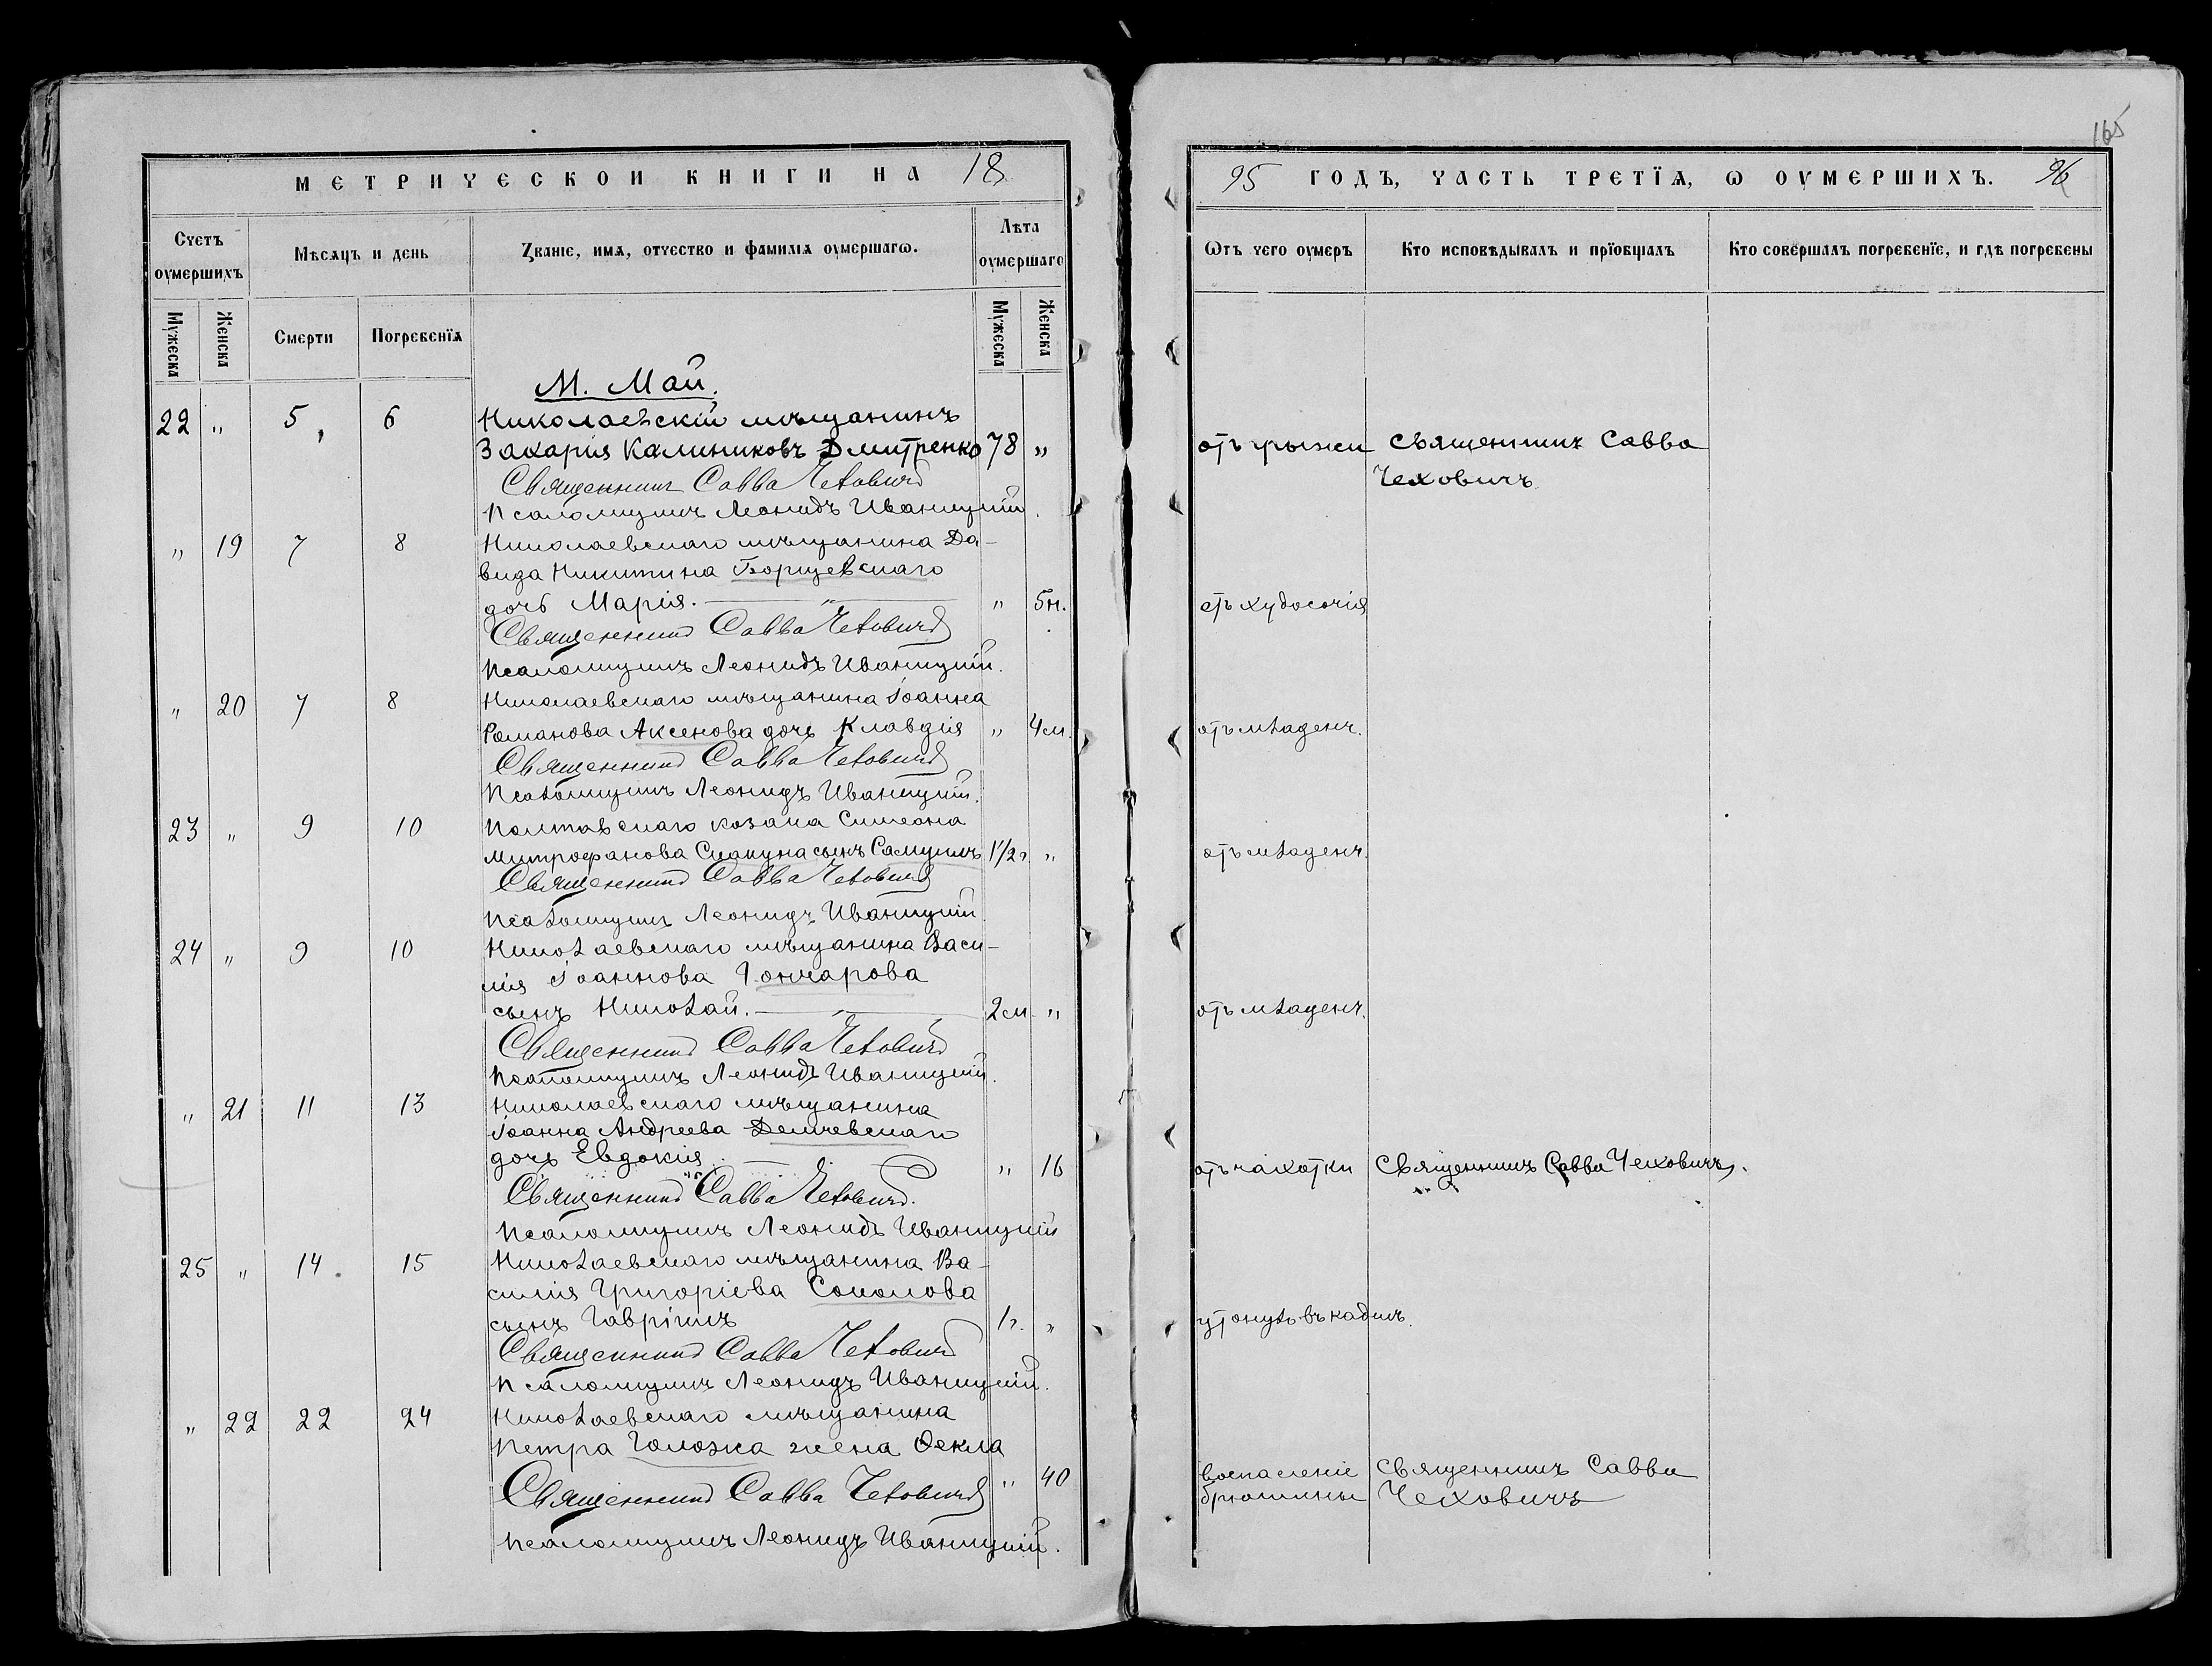 МЕТРИЧЕСКОИ КНИГИ НА 18
Счетъ оумершихъ
Мѣсяцъ и день
Званіе, имя, отчество и фамилія оумершагѡ.
Лѣта оумершаго
Мужеска
Женска
Смерти
Погребенїя
Мужеска
Женска
М. Май.
22 " 5 6 Николаевскій мѣщанинъ
Захарія Калиниковъ Дмитренко 78 "
Священникъ Савва Чеховичъ
Псаломщикъ Леонидъ Иваницкій.
" 19 7 8 Николаевскаго мѣщанина Да-
вида Никитина Борщевскаго
дочь Марія. " 5н.
Священникъ Савва Чеховичъ
Псаломщикъ Леонидъ Иваницкій.
" 20 7 8 Николаевскаго мѣщанина Іоанна
Романова Аксенова дочь Клавдія " 4м.
Священникъ Савва Чеховичъ
Псаломщикъ Леонидъ Иваницкій.
23 " 9 10 Полтавскаго козака Симеона
Митрофанова сынъ Самуилъ 1½г. "
Священникъ Савва Чеховичъ
Псаломщикъ Леонидъ Иваницкій
24 " 9 10 Николаевскаго мѣщанина Васи-
лія Іоаннова Гончарова
сынъ Николай. 2м. "
Священникъ Савва Чеховичъ
Псаломщикъ Леонидъ Иваницкій.
" 21 11 13 Николаевскаго мѣщанина
Іоанна Андреева Демчевскаго
дочь Евдокія " 16
Священникъ Савва Чеховичъ.
Псаломщикъ Леонидъ Иваницкій
25 " 14 15 Николаевскаго мѣщанина Ва-
силія Григоріева Соколова
сынъ Гавріилъ 1г. "
Священникъ Савва Чеховичъ
Псаломщикъ Леонидъ Иваницкій.
" 22 22 24 Николаевскаго мѣщанина
Петра жена Ѳекла
Священникъ Савва Чеховичъ " 40
Псаломщикъ Леонидъ Иваницкій.
165
95 ГОДЪ, ЧАСТЬ ТРЕТІЯ, Ѡ ОУМЕРШИХЪ. 96
Ѿтъ чего оумеръ
Кто исповѣдывалъ и прїобщалъ
Кто совершалъ погребенїе, и гдѣ погребены
отъ грыжи Священникъ Савва
Чеховичъ
отъ худосочія
отъ младенч.
отъ младенч.
отъ младенч.
отъ чахотки Священникъ Савва Чеховичъ.
утонулъ въ кадкѣ.
воспаленіе Священникъ Савва
брюшины Чеховичъ